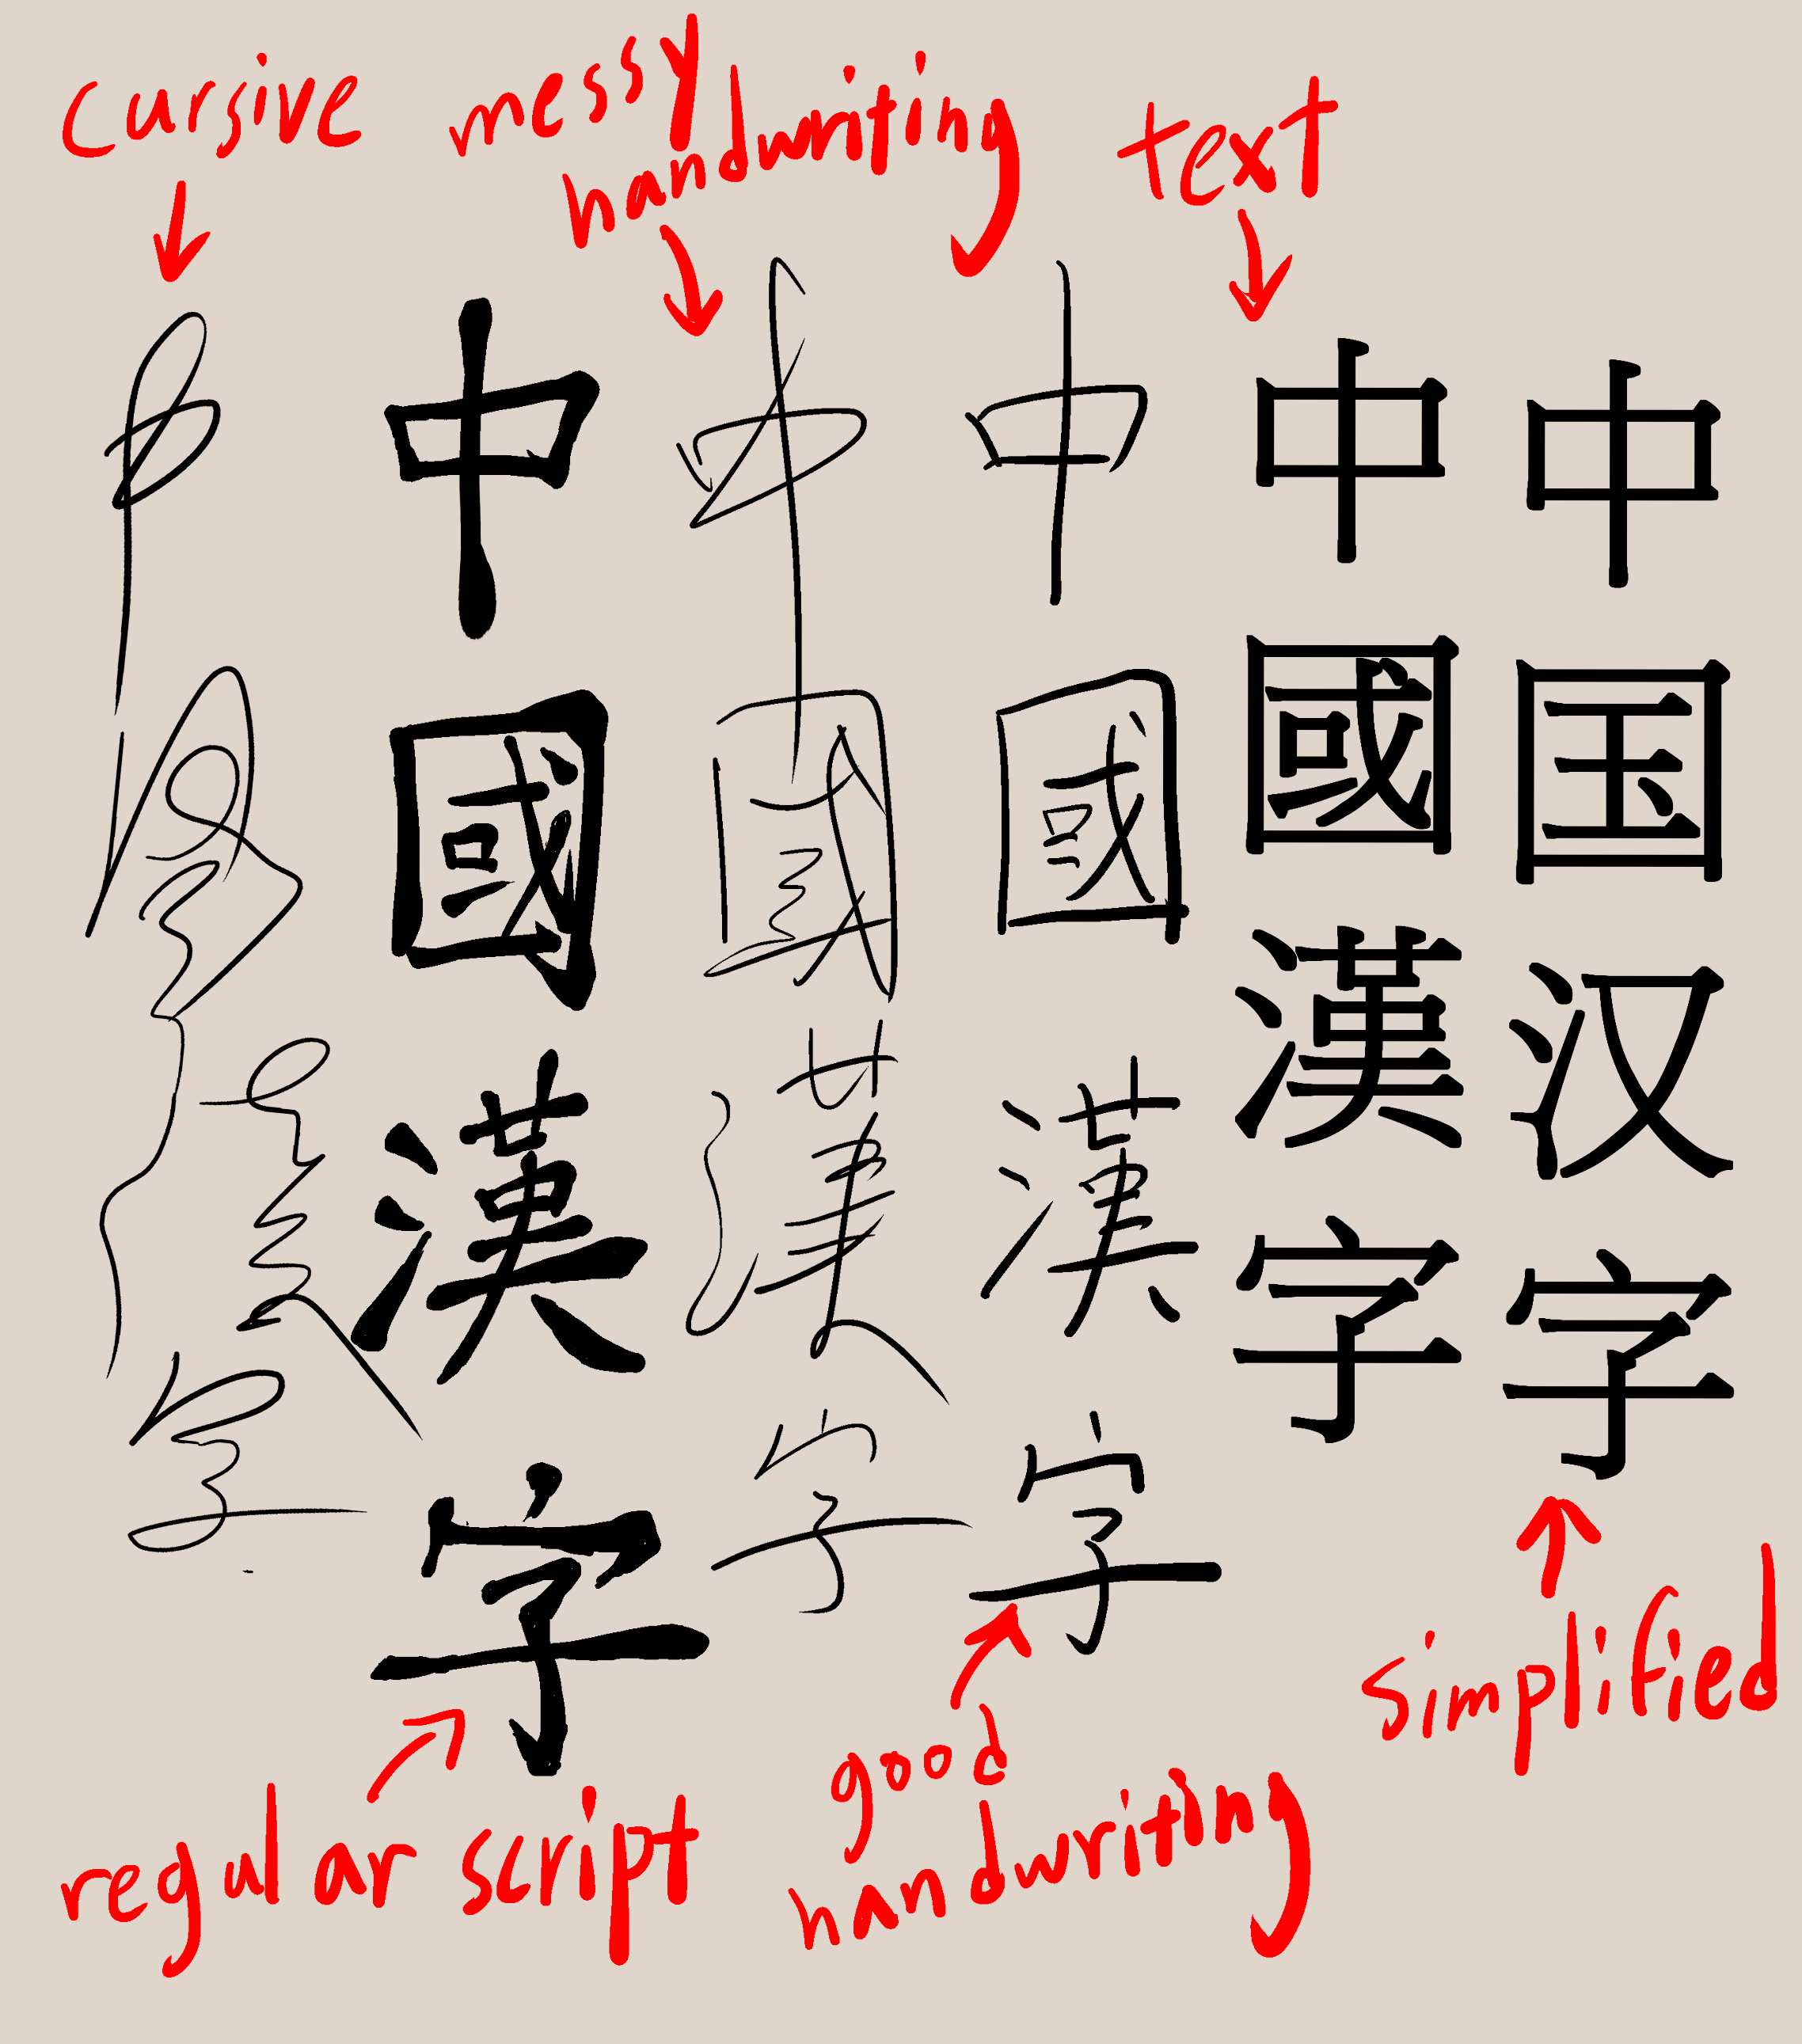 cursive
messy
handwriting
text
中國漢字
中國漢字
中國漢字
中國漢字
中國漢字
中国汉字
regular script
good
handwriting
simplified